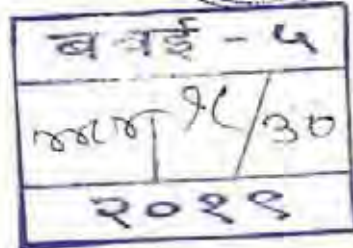 बबई - ५
१८/३०
२०१९